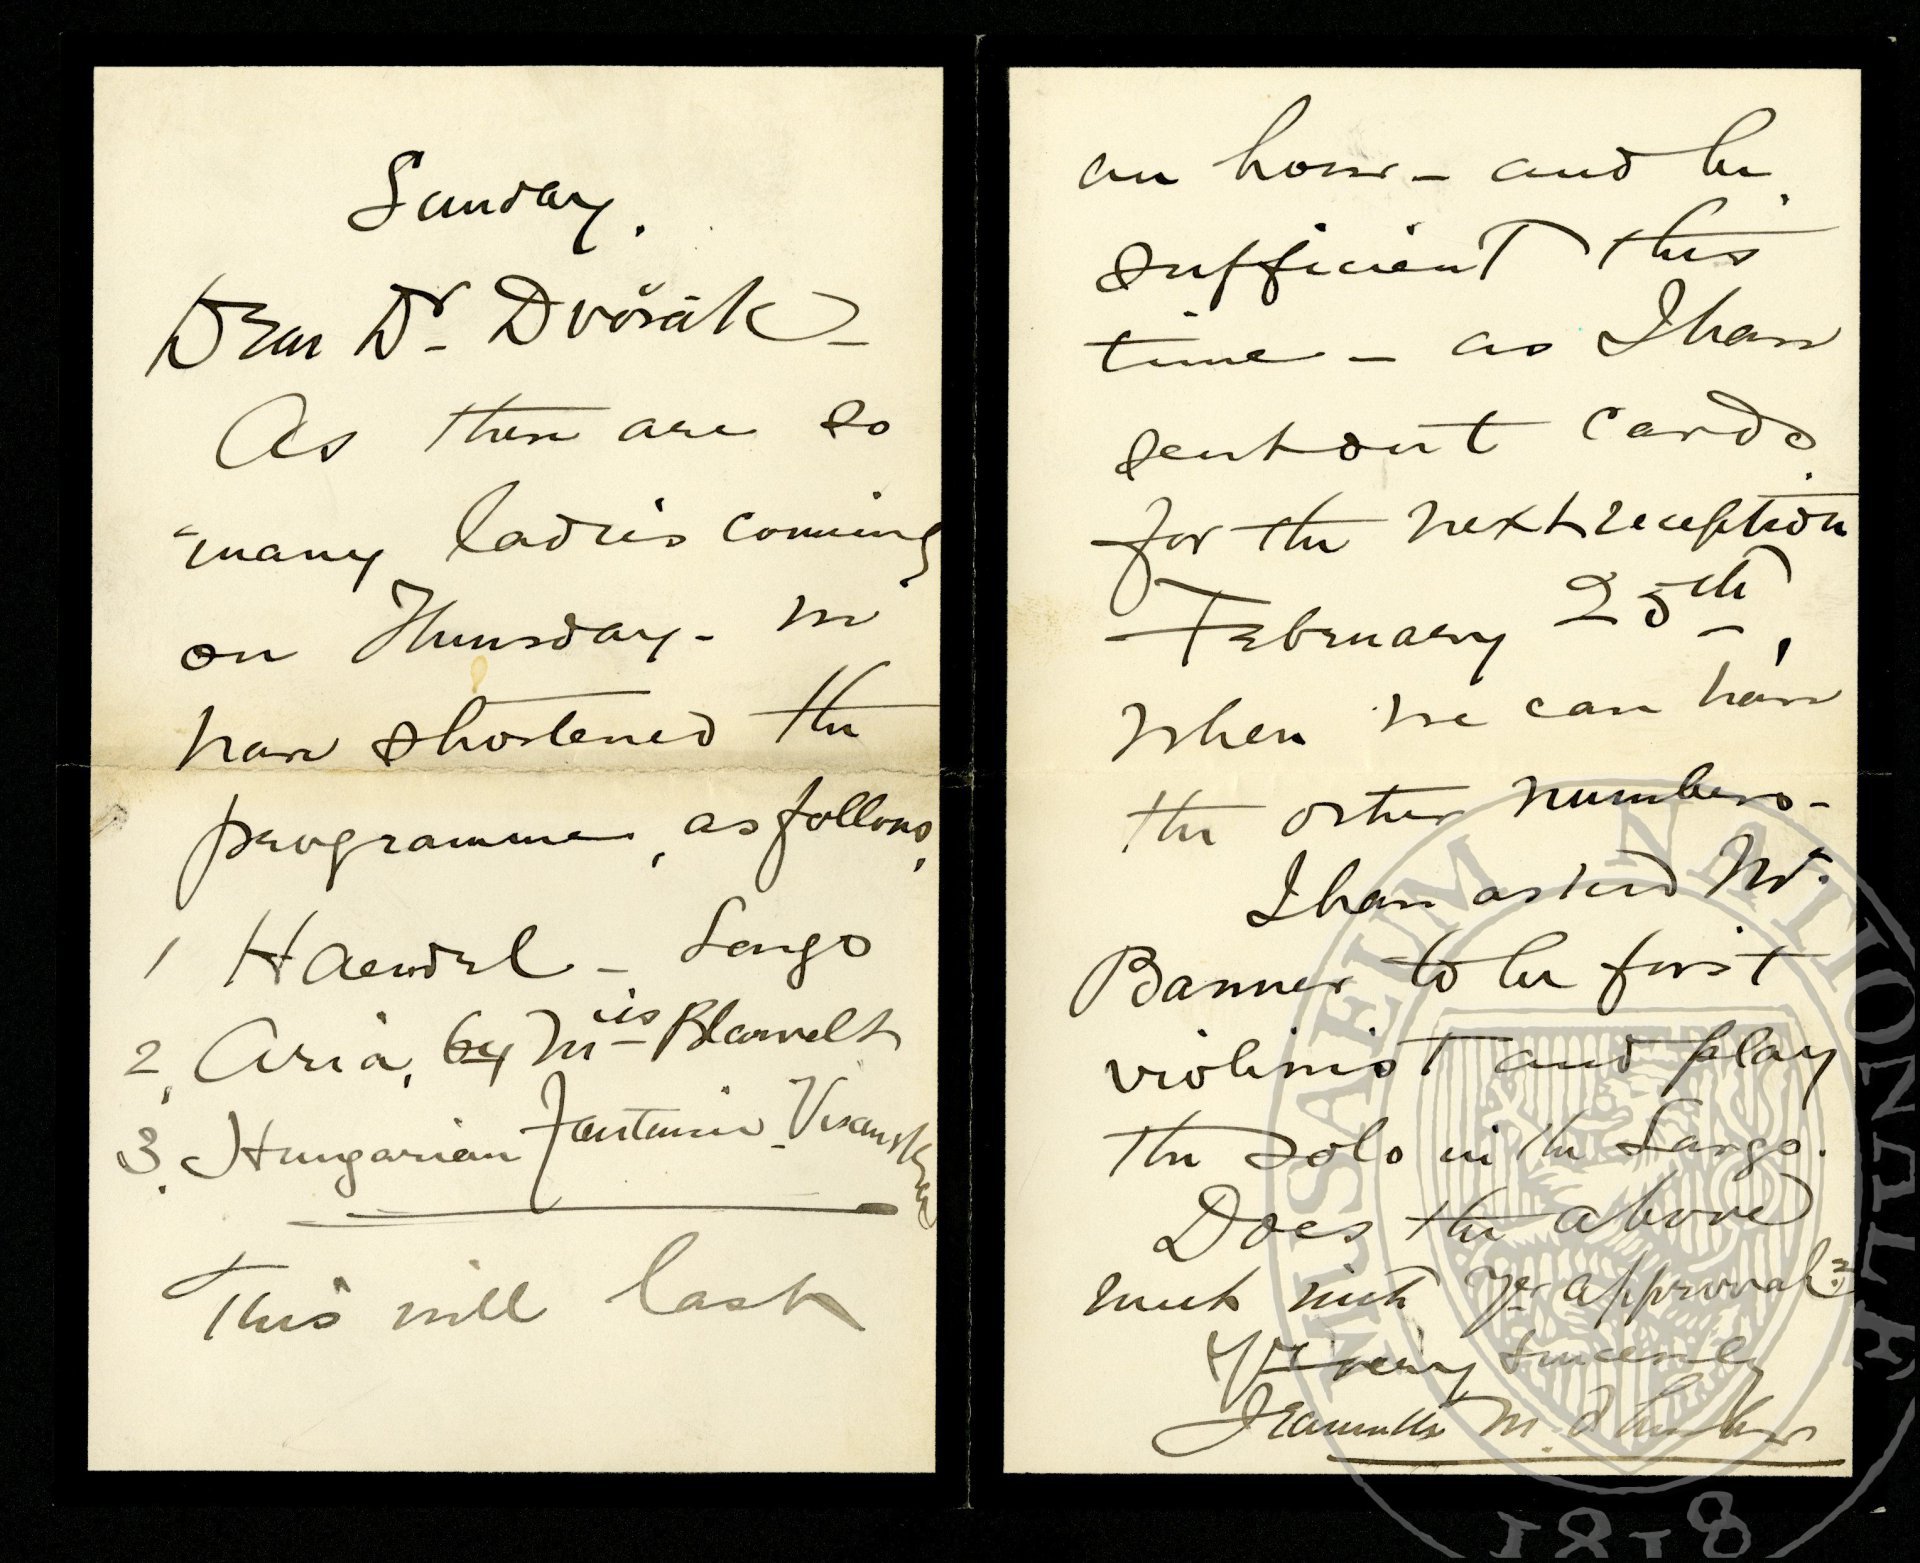 Sunday.
Dear Dr. Dvořák –
As there are so
many ladies coming
on Thursday – we
have shortened the
programme, as follows,
1 Haendel – Largo
2, Aria, by Miss Blauvelt
3. Hungarian Fantasie – Vivansky
This will last
an hour – and be
sufficient this
time – as I have
sent out cards
for the next reception
February 25th,
when we can have
the other numbers –
I have asked Mr.
Banner to be first
violinist and play
the solo in the Largo.
Does the above
meet with yr approval?
Yrs very sincerely
Jeannette M. Thurber
MUSAEUM NATIONALE
1818